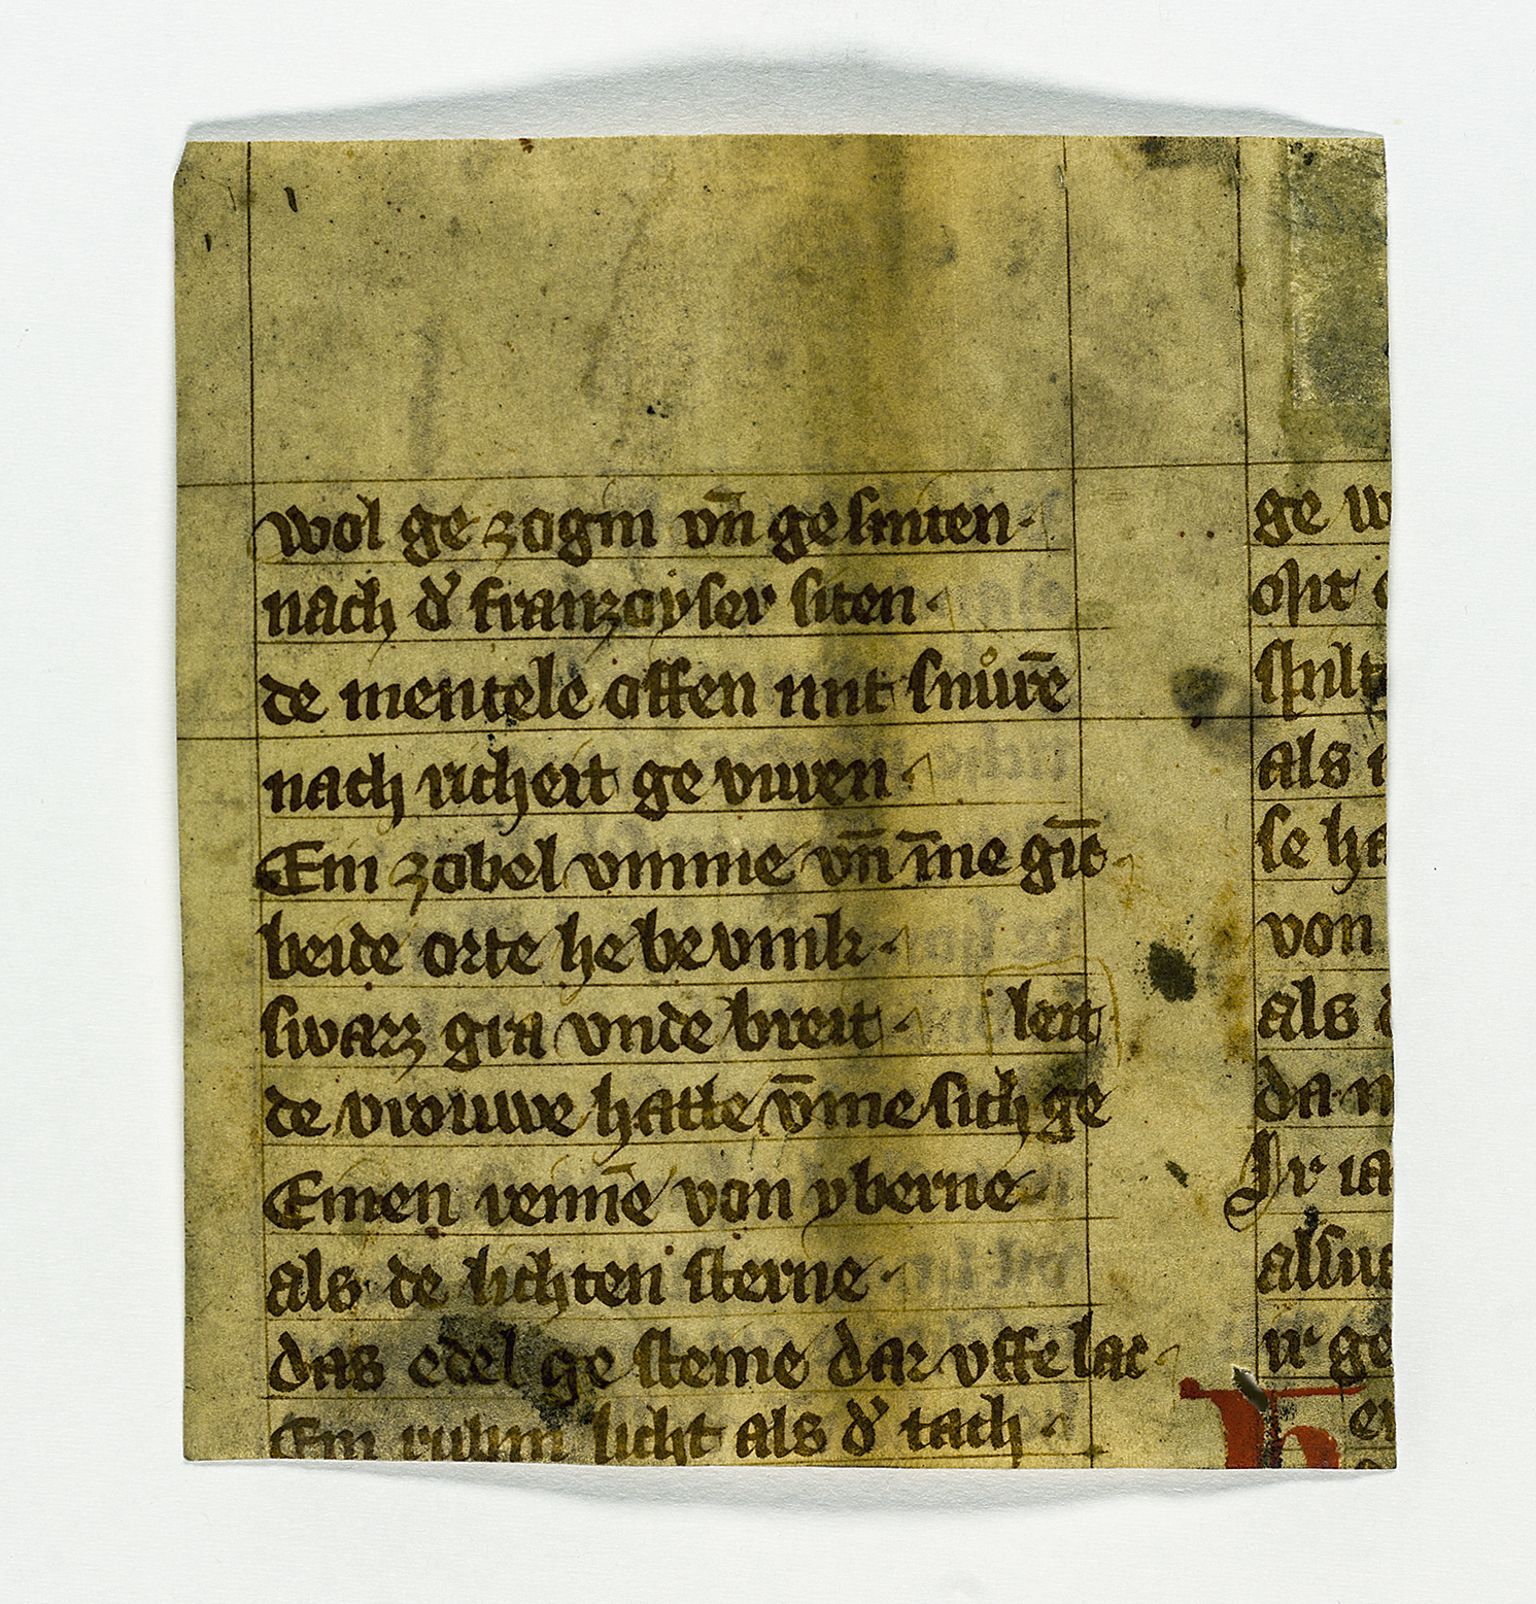 wol ge zogin vn̄ ge sniten·
nach d' franzoyser siten·
de mentele offen mit snuͦrē
nach richeit ge vuren·
Ein zobel vmme vn̄ m̄me gie·
beide orte he be vink·
swarz gra vnde breit· leit
de vrouwe hatte v̄me sich ge
Einen rennē von yberne·
als de lichten sterne·
das edel ge steine dar vffe lac
Ein rubin licht als d' tach·
ge w
als
se ha
von
als d
da
Ir ia
ir ge